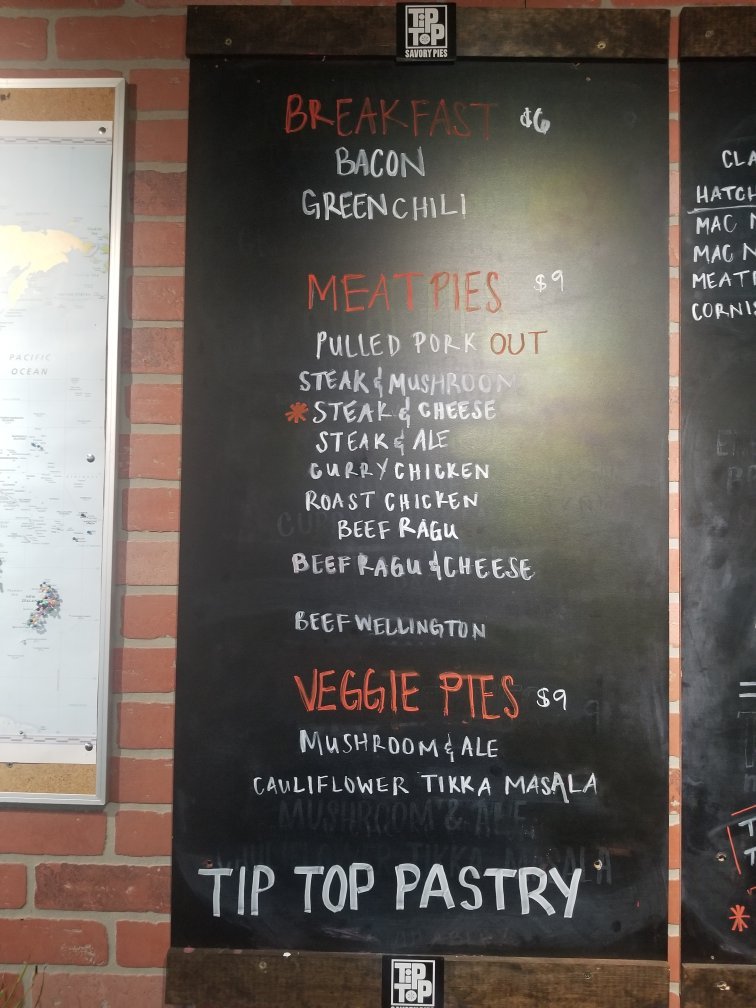 TIP
TOP
SAVORY PIES
BREAKFAST $6
BACON
GREEN CHILI
MEAT PIES $9
PULLED PORK OUT
STEAK & MUSHROOM
* STEAK & CHEESE
STEAK & ALE
CURRY CHICKEN
ROAST CHICKEN
BEEF RAGU
BEEF RAGU & CHEESE
BEEF WELLINGTON
VEGGIE PIES $9
MUSHROOM & ALE
CAULIFLOWER TIKKA MASALA
MUSHROOM & ALE
TIKKA MASALA
TIP TOP PASTRY
TIP
TOP
PACIFIC
OCEAN
CLA
HATCH
MAC
MAC
MEAT
CORNIS
*